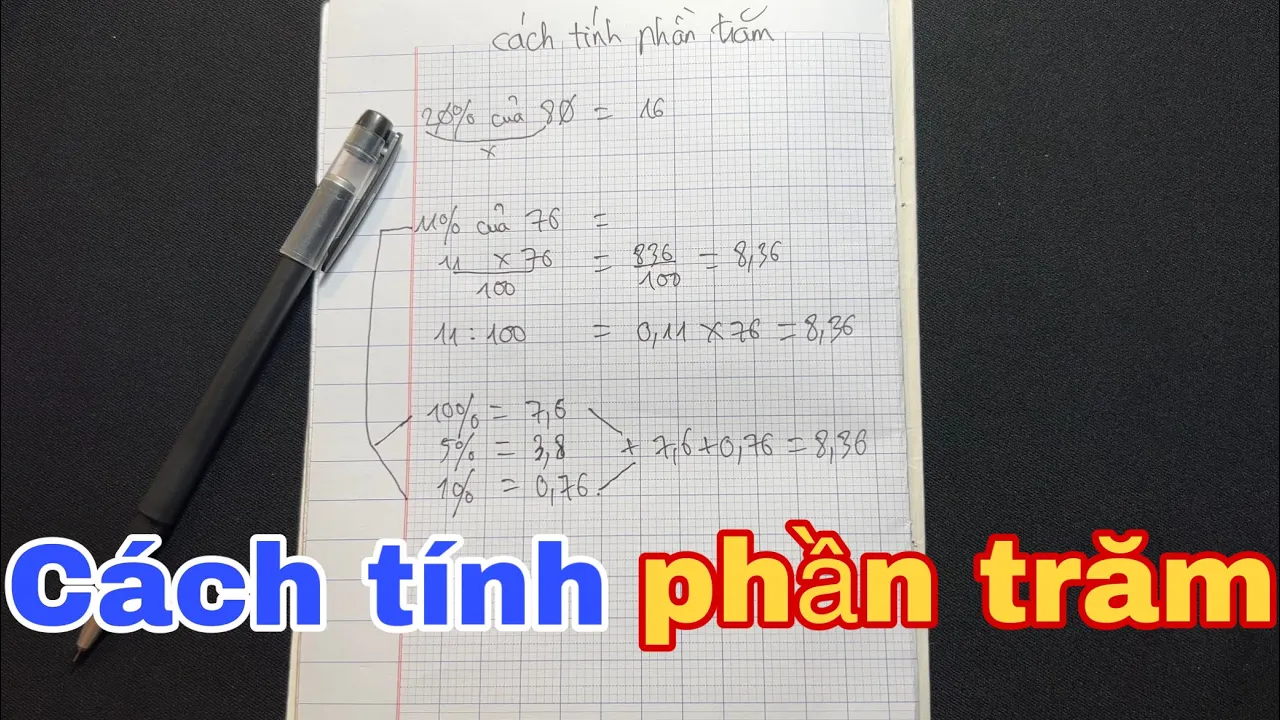 cách tính phần trăm
20% củả 80 = 16
x
11% củả 76 =
11 x 76 = 836 = 8,36
100 100
11 : 100 = 0,11 x 76 = 8,36
10% = 7,6
5% = 3,8 + 7,6 + 0,76 = 8,36
1% = 0,76
Cách tính phần trăm